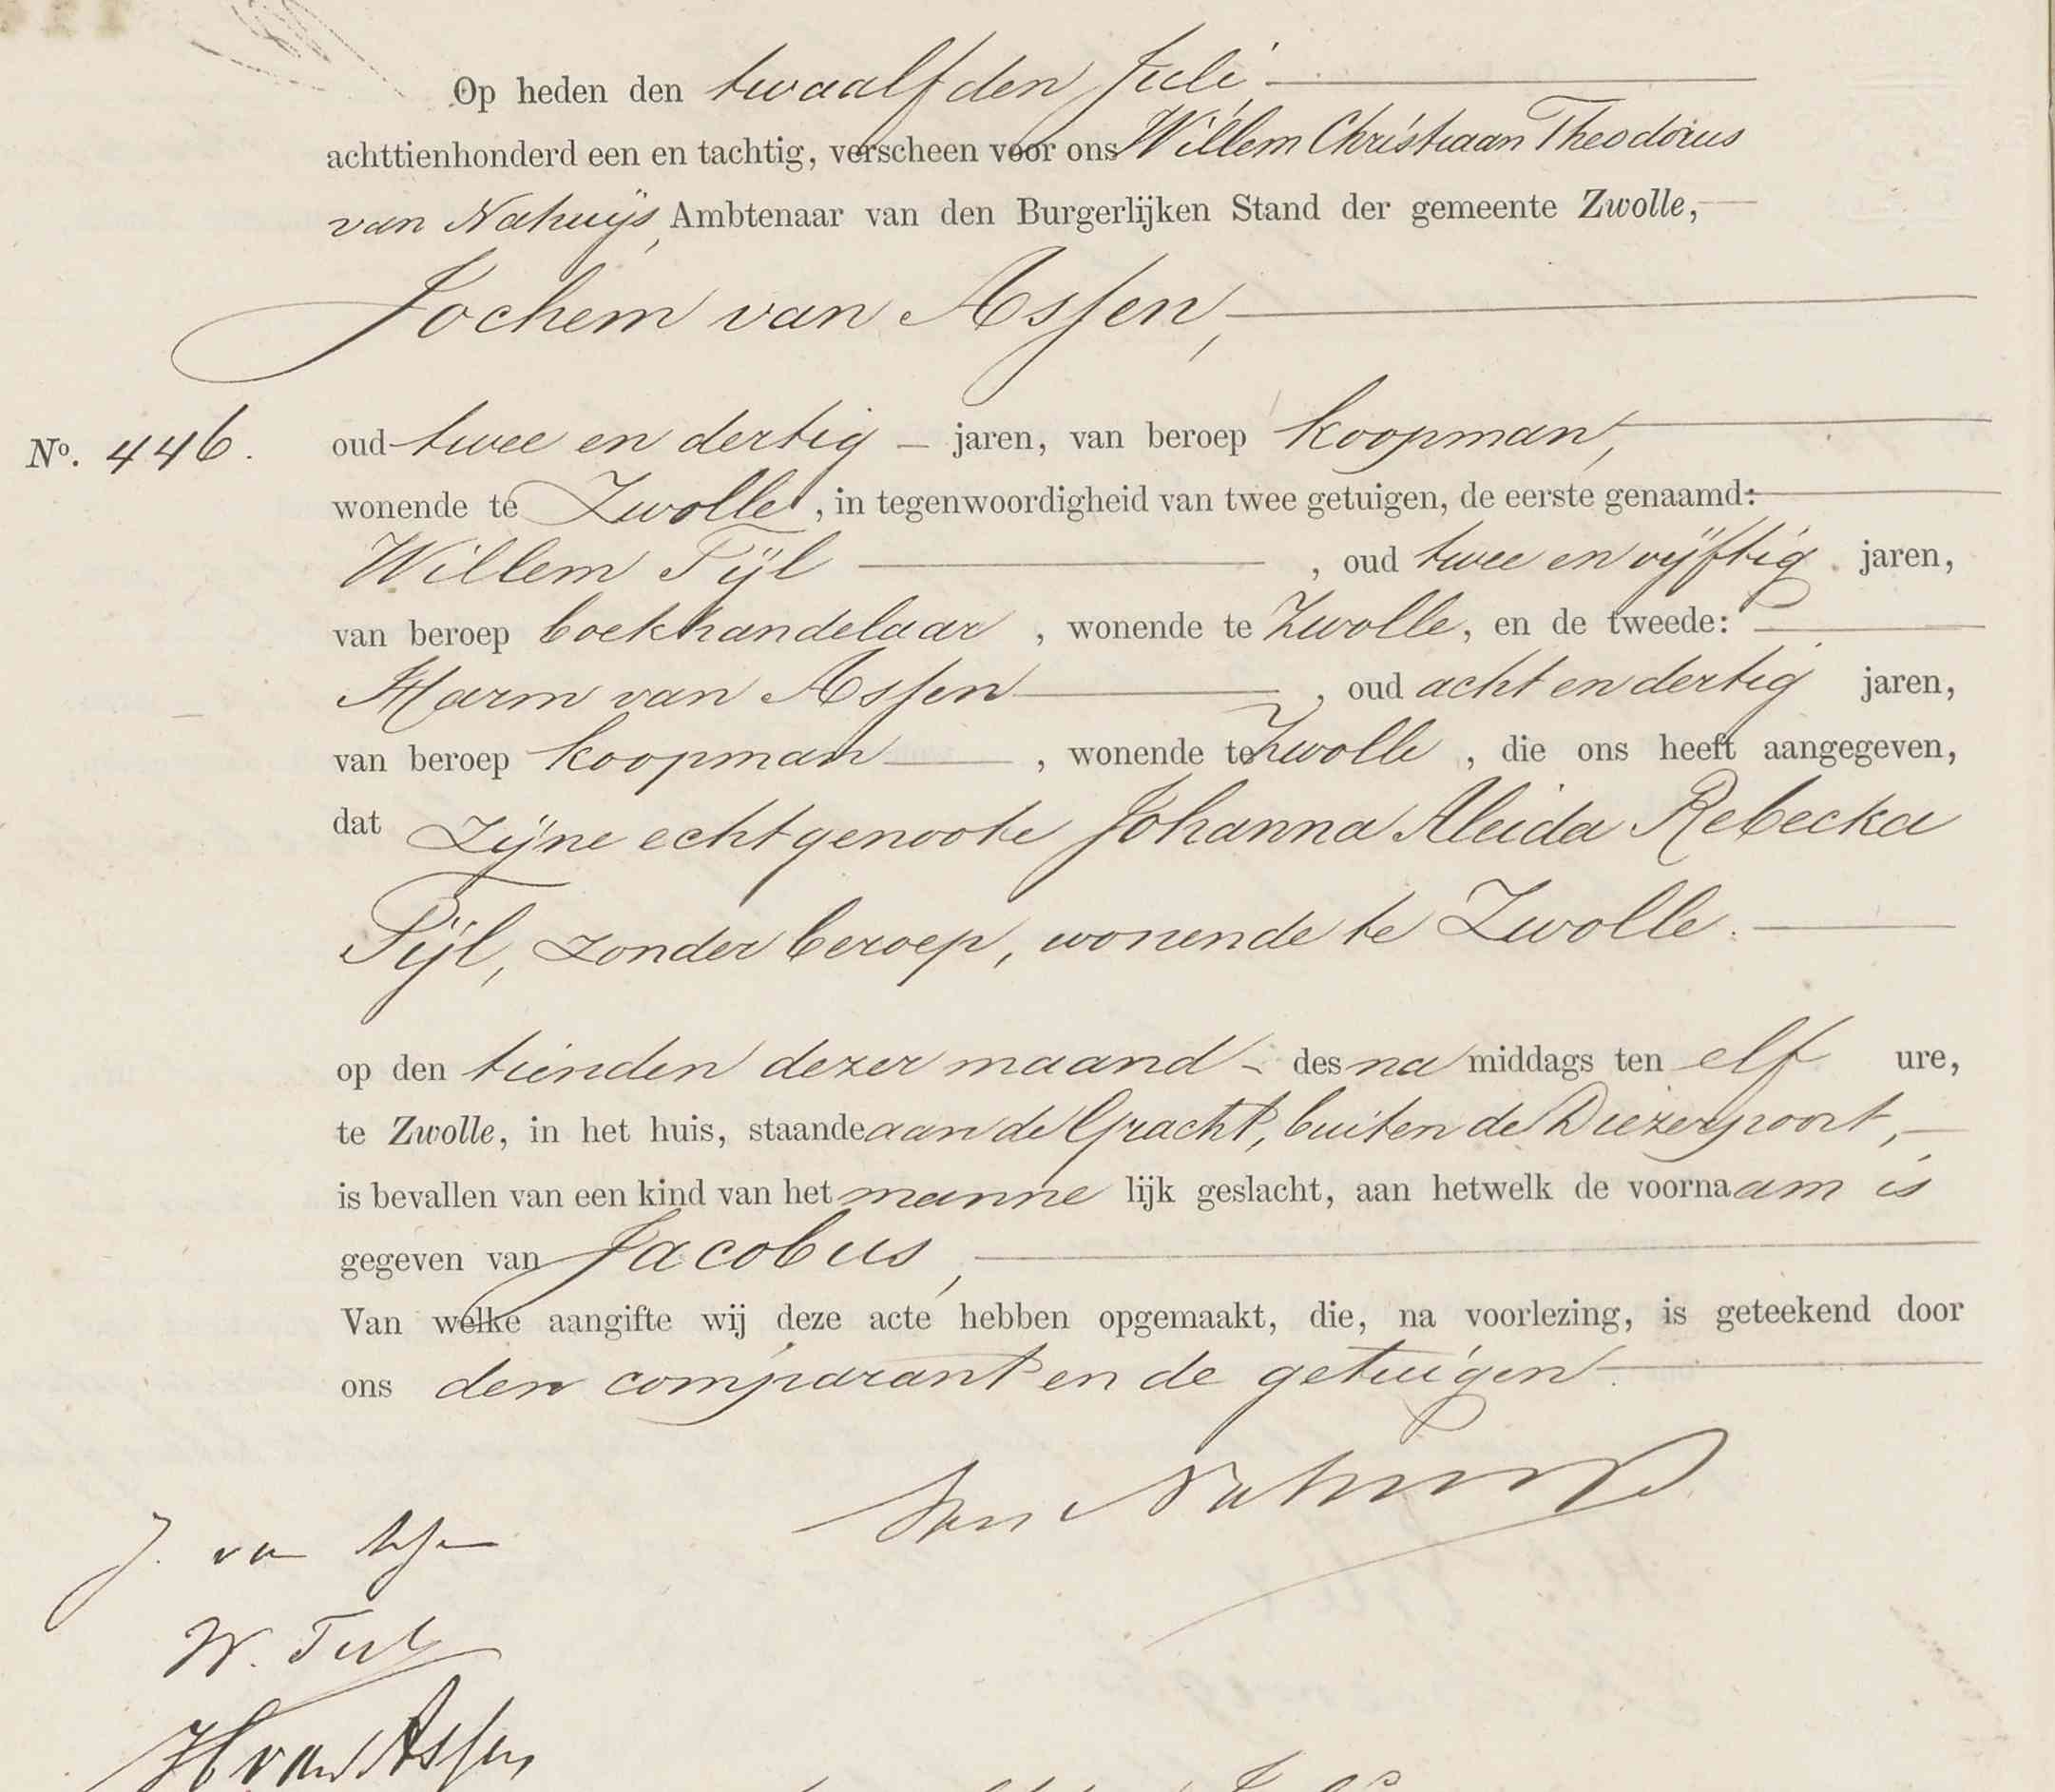 Op heden den twaalfden Juli
achttienhonderd een en tachtig, verscheen voor ons Willem Christiaan Theodorus
van Nahuijs, Ambtenaar van den Burgerlijken Stand der gemeente Zwolle,
Jochem van Assen,
No. 446. oud twee en dertig jaren, van beroep koopman,
wonende te Zwolle, in tegenwoordigheid van twee getuigen, de eerste genaamd:
Willem Tijl, oud twee en vijftig jaren,
van beroep boekhandelaar, wonende te Zwolle, en de tweede:
Harm van Assen, oud acht en dertig jaren,
van beroep koopman, wonende te Zwolle, die ons heeft aangegeven,
dat zijne echtgenoote Johanna Aleida Rebecka
Tijl, zonder beroep, wonende te Zwolle.
op den tienden dezer maand des namiddags ten elf ure,
te Zwolle, in het huis, staande aan de Gracht, buiten de Diezerpoort,
is bevallen van een kind van het mannelijk geslacht, aan hetwelk de voornaam is
gegeven van Jacobus,
Van welke aangifte wij deze acte hebben opgemaakt, die, na voorlezing, is geteekend door
ons den comparant en de getuigen.
Van Nahuijs
J. van Assen
W. Tijl
H van Assen